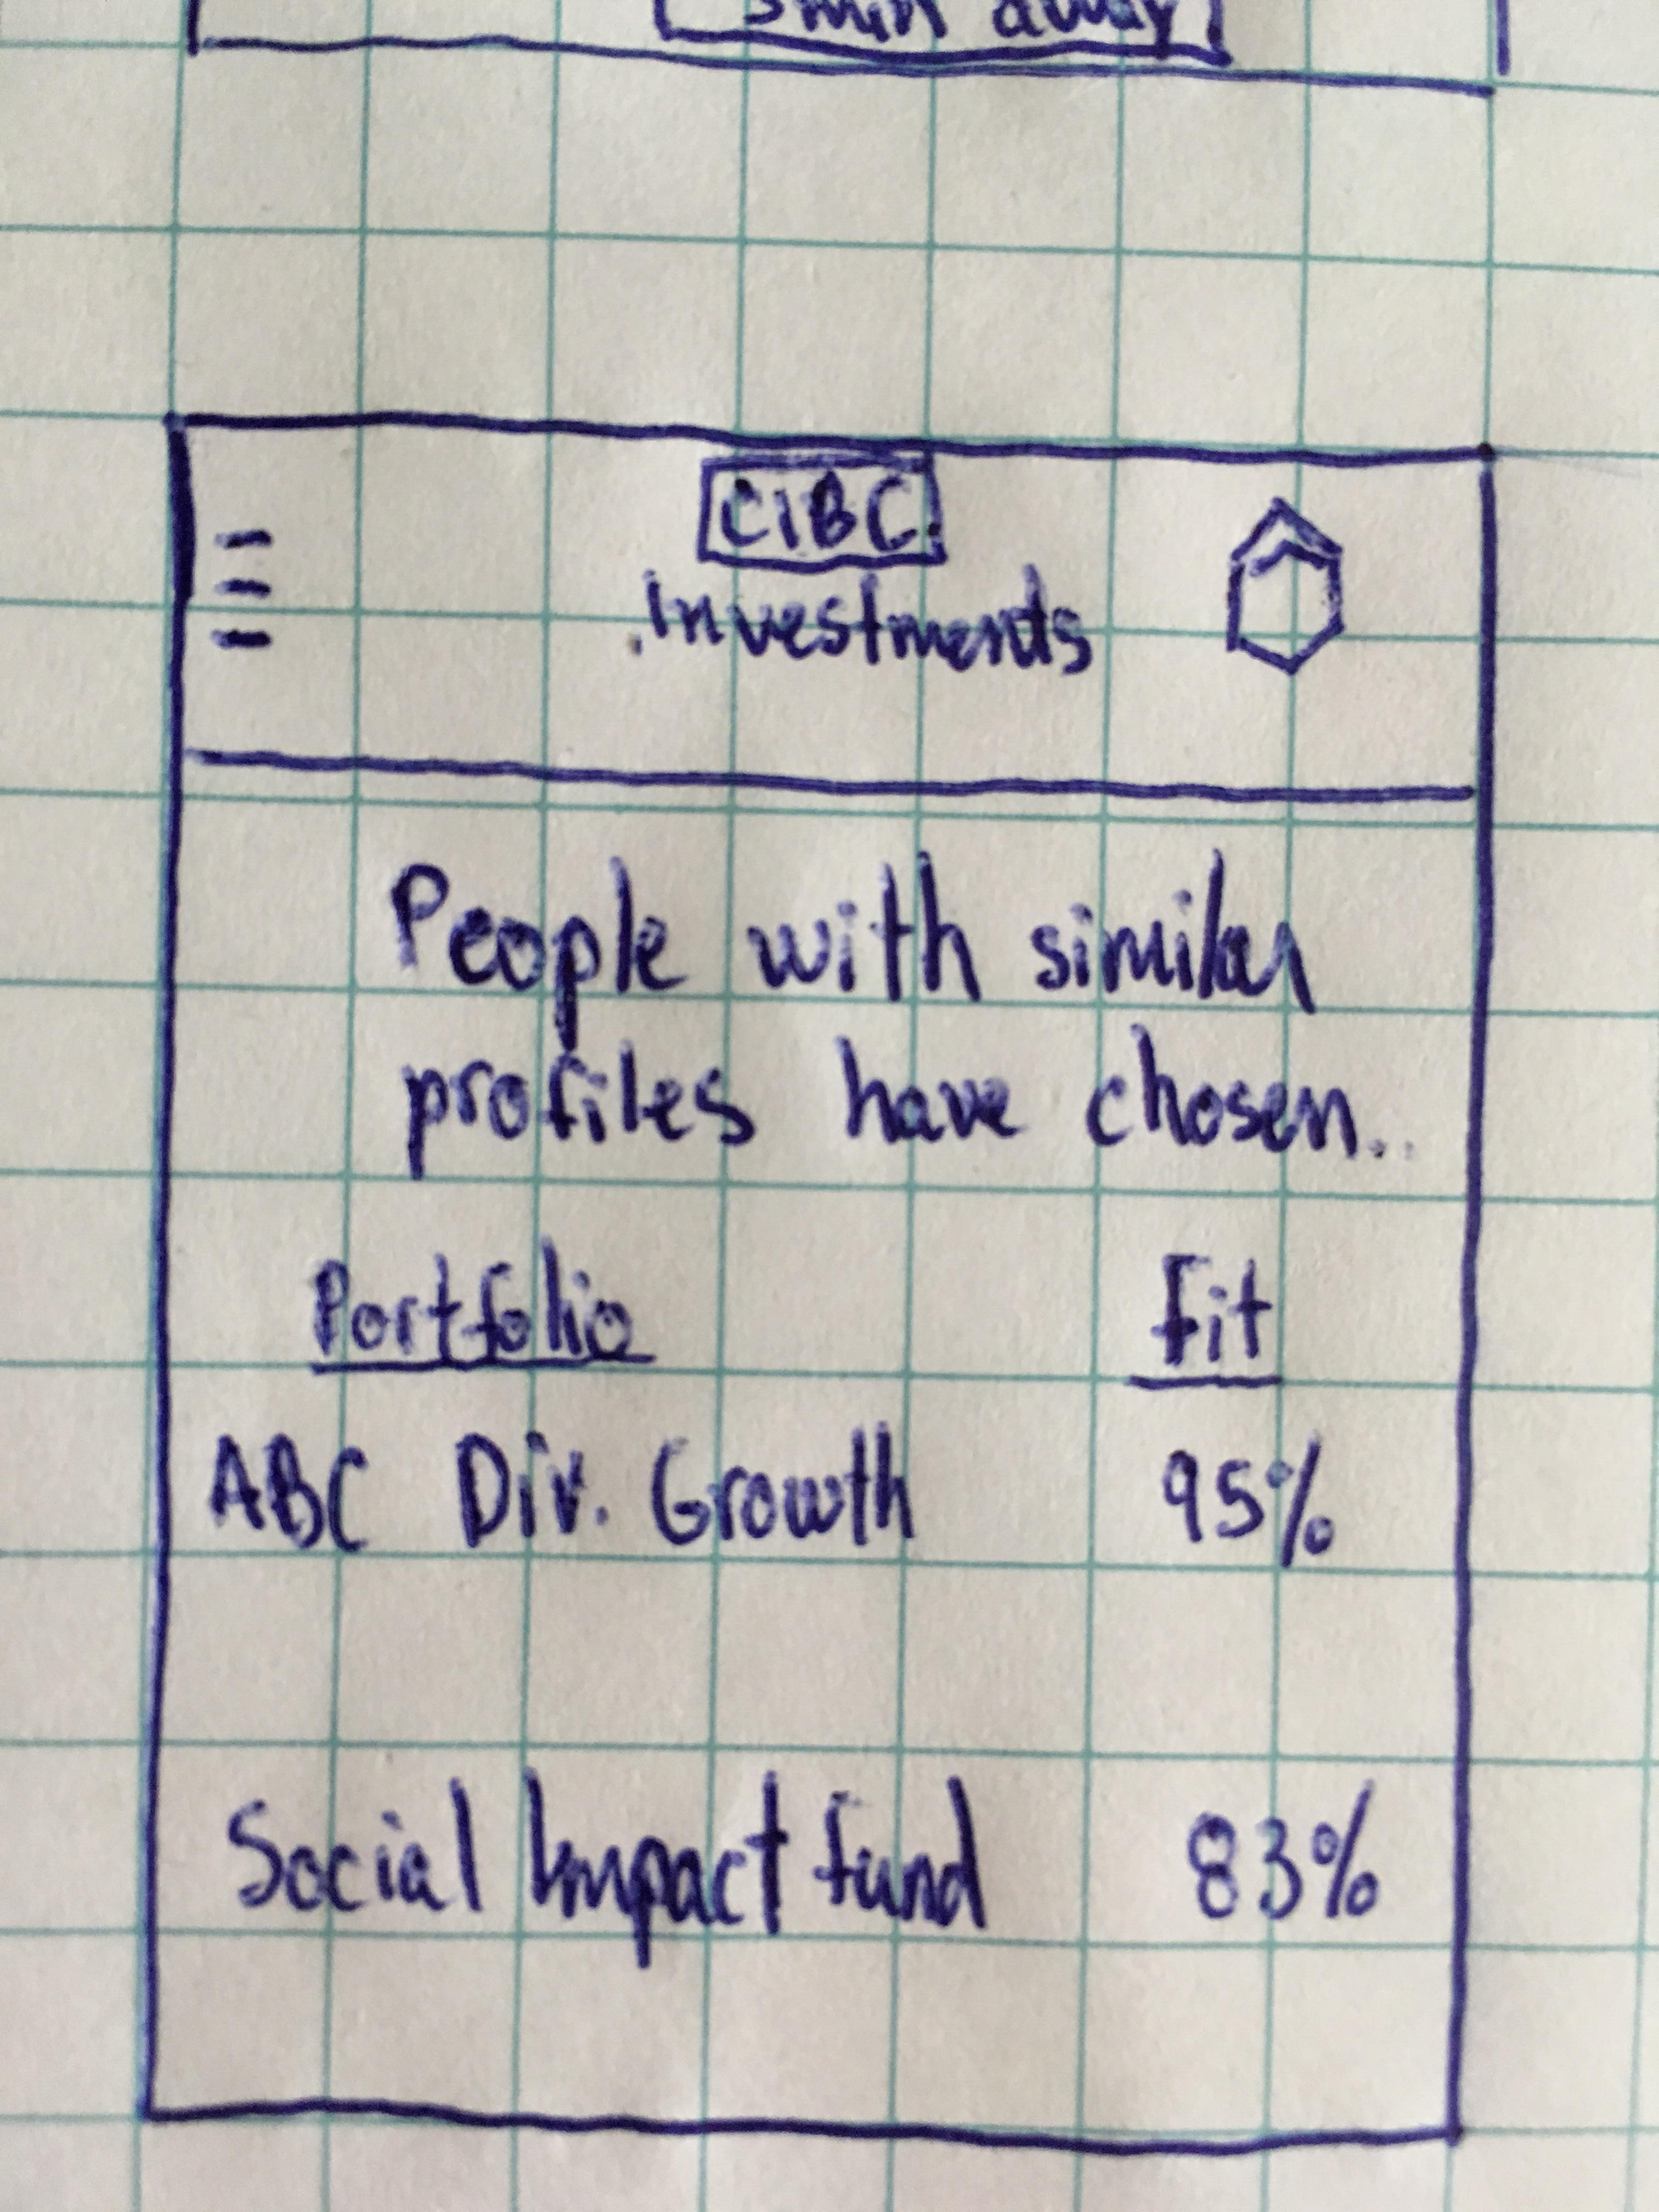 5min away
CIBC
investments
People with similar
profiles have chosen..
Portfolio Fit
ABC Div. Growth 95%
Social Impact Fund 83%